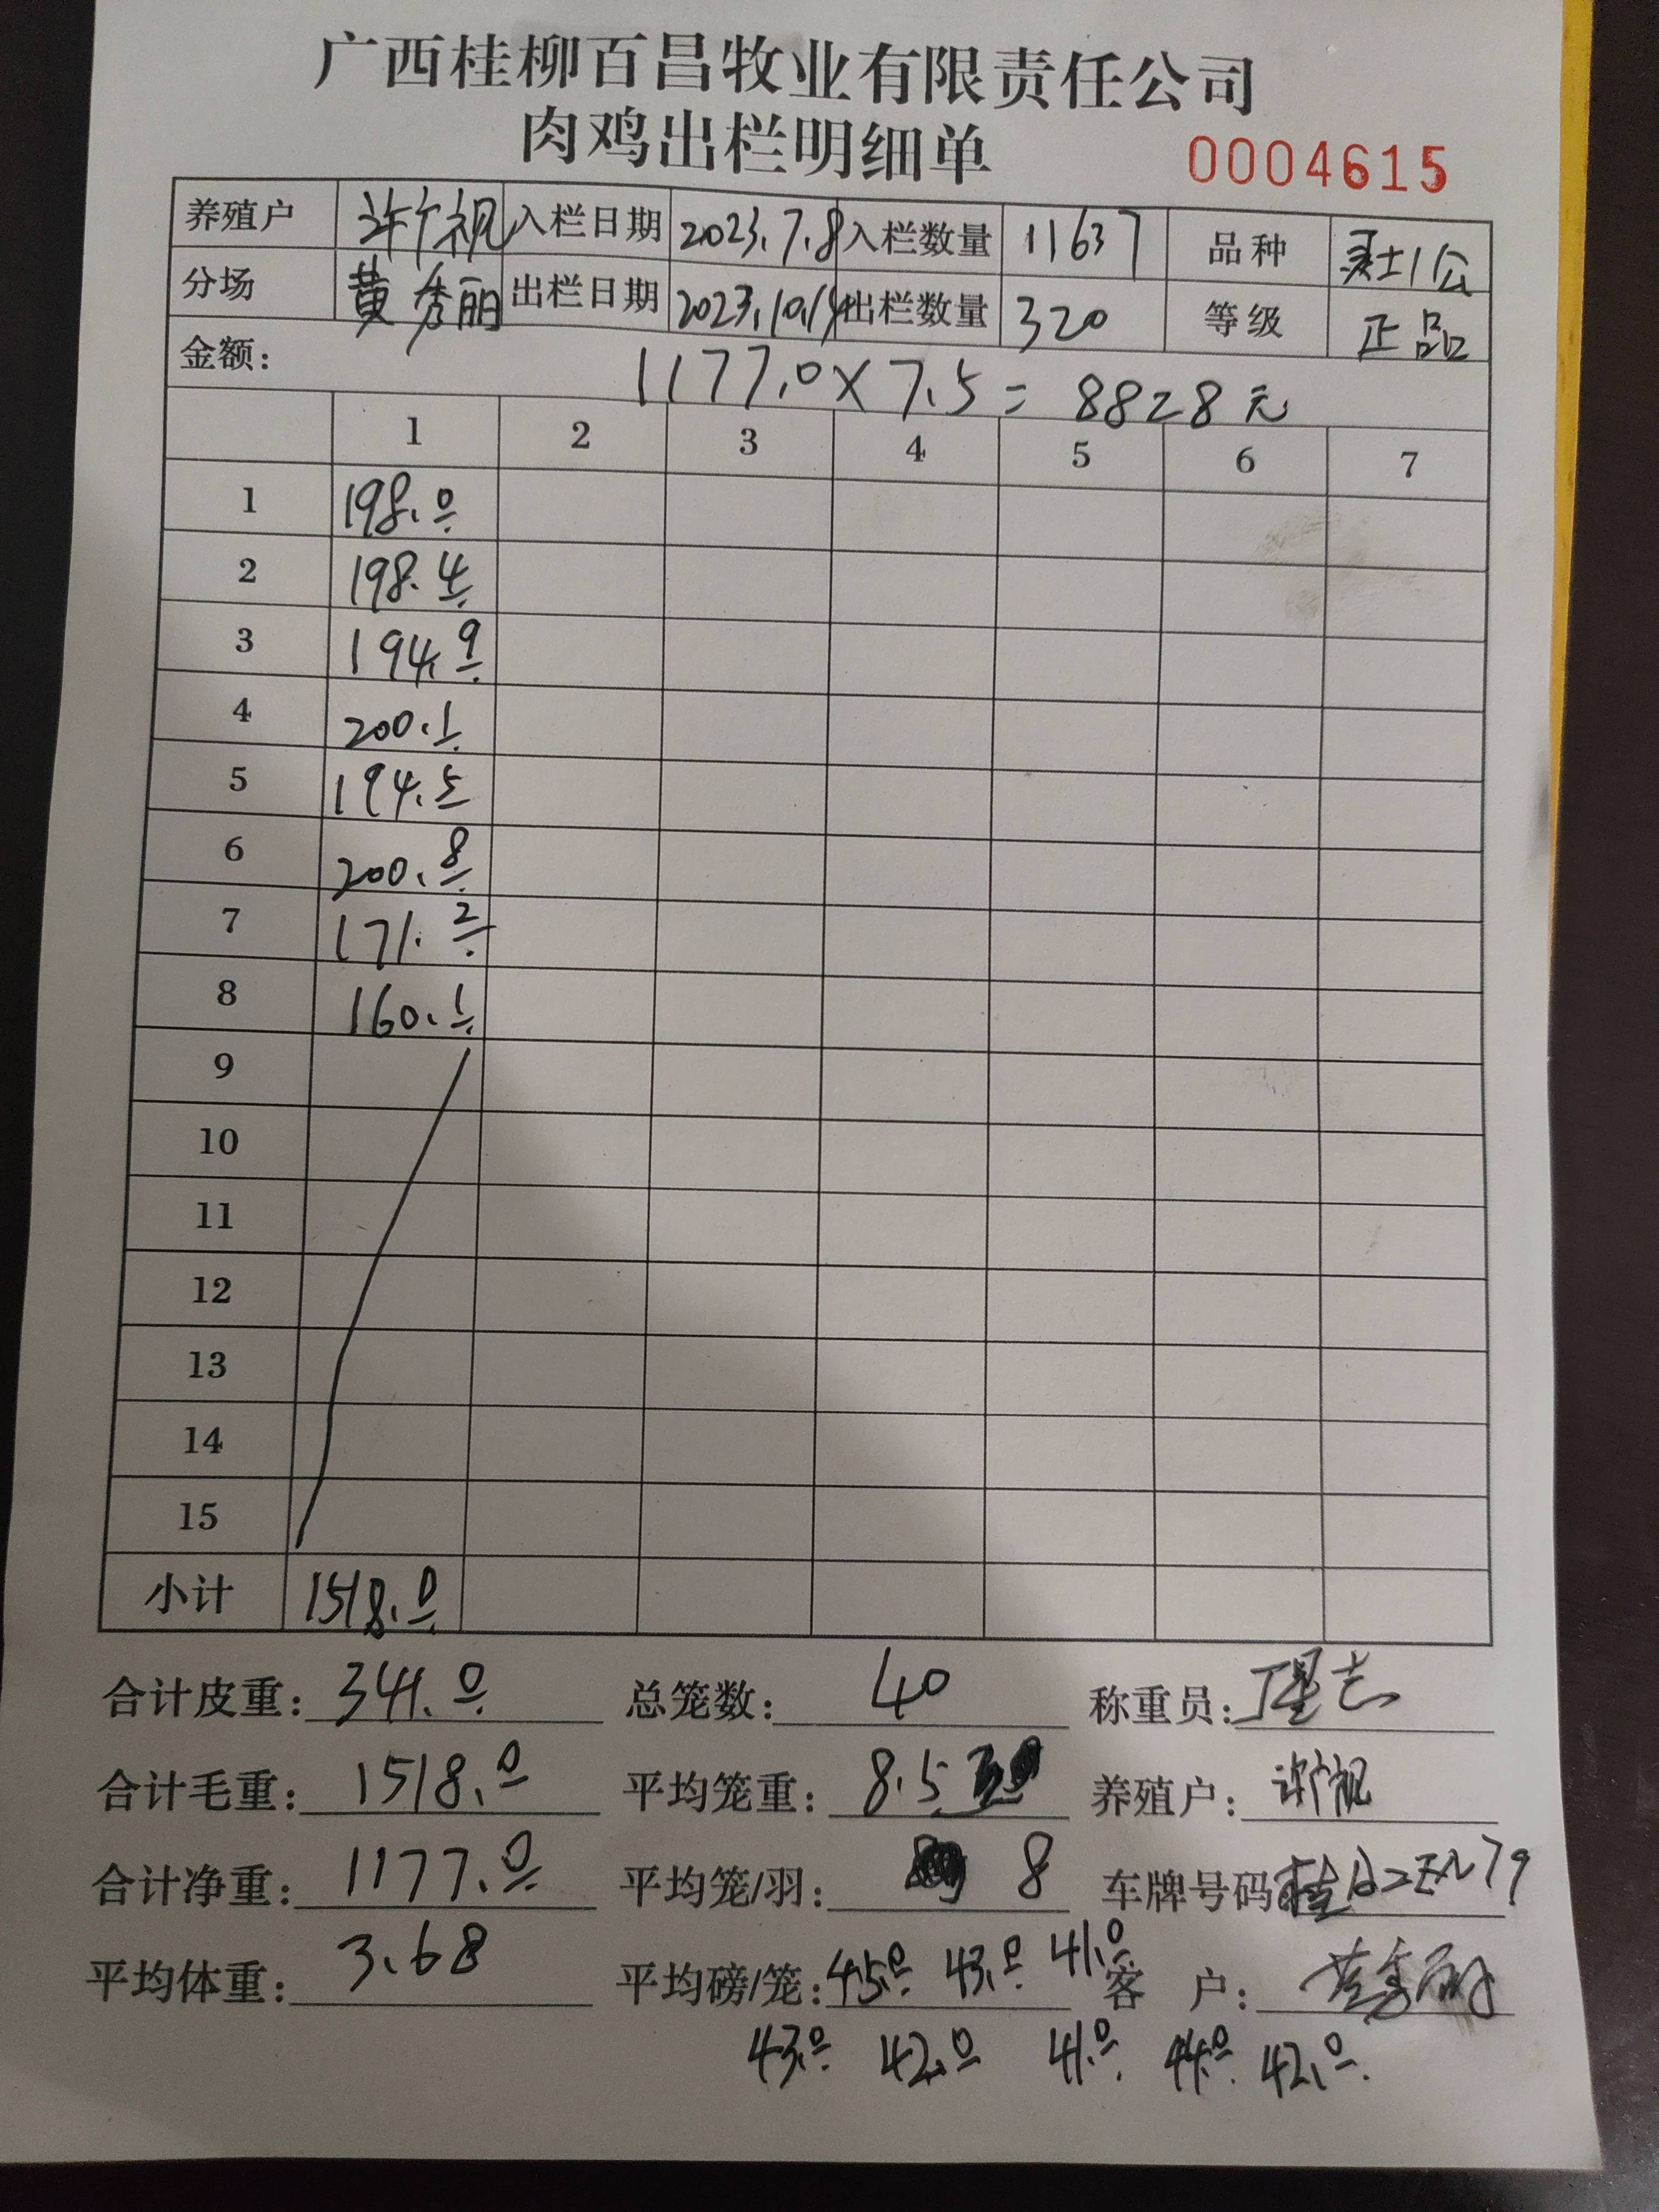 广西桂柳百昌牧业有限责任公司
肉鸡出栏明细单 0004615
养殖户 许广祝 入栏日期 2023.7.8 入栏数量 11637 品种 土1公
分场 黄秀丽 出栏日期 2023.10.14 出栏数量 320 等级 正品
金额: 1177.0×7.5=8828元
1 2 3 4 5 6 7
1 198.0
2 198.4
3 194.9
4 200.1
5 194.5
6 200.8
7 171.2
8 160.1
9
10
11
12
13
14
15
小计 1518.0
合计皮重: 341.0 总笼数: 40 称重员:
合计毛重: 1518.0 平均笼重: 8.5 养殖户: 许广祝
合计净重: 1177.0 平均笼/羽: 8 车牌号码 桂
平均体重: 3.68 平均磅/笼: 45.0 43.0 41.0 客 户: 黄秀丽
43.0 42.0 41.0 44.0 42.0